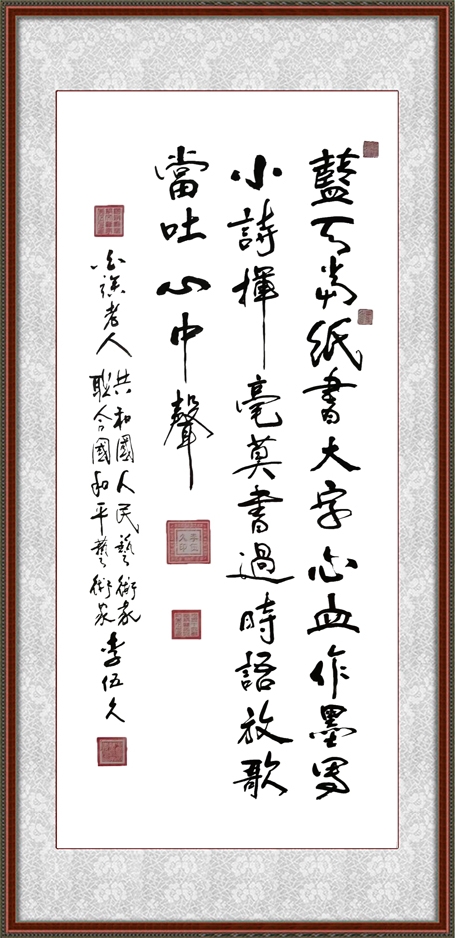 藍天当紙書大字心血作墨寫
小詩揮毫莫書過時語放歌
當吐心中聲
老人
共和國人民藝術家
聯合國和平藝術家
李伍久